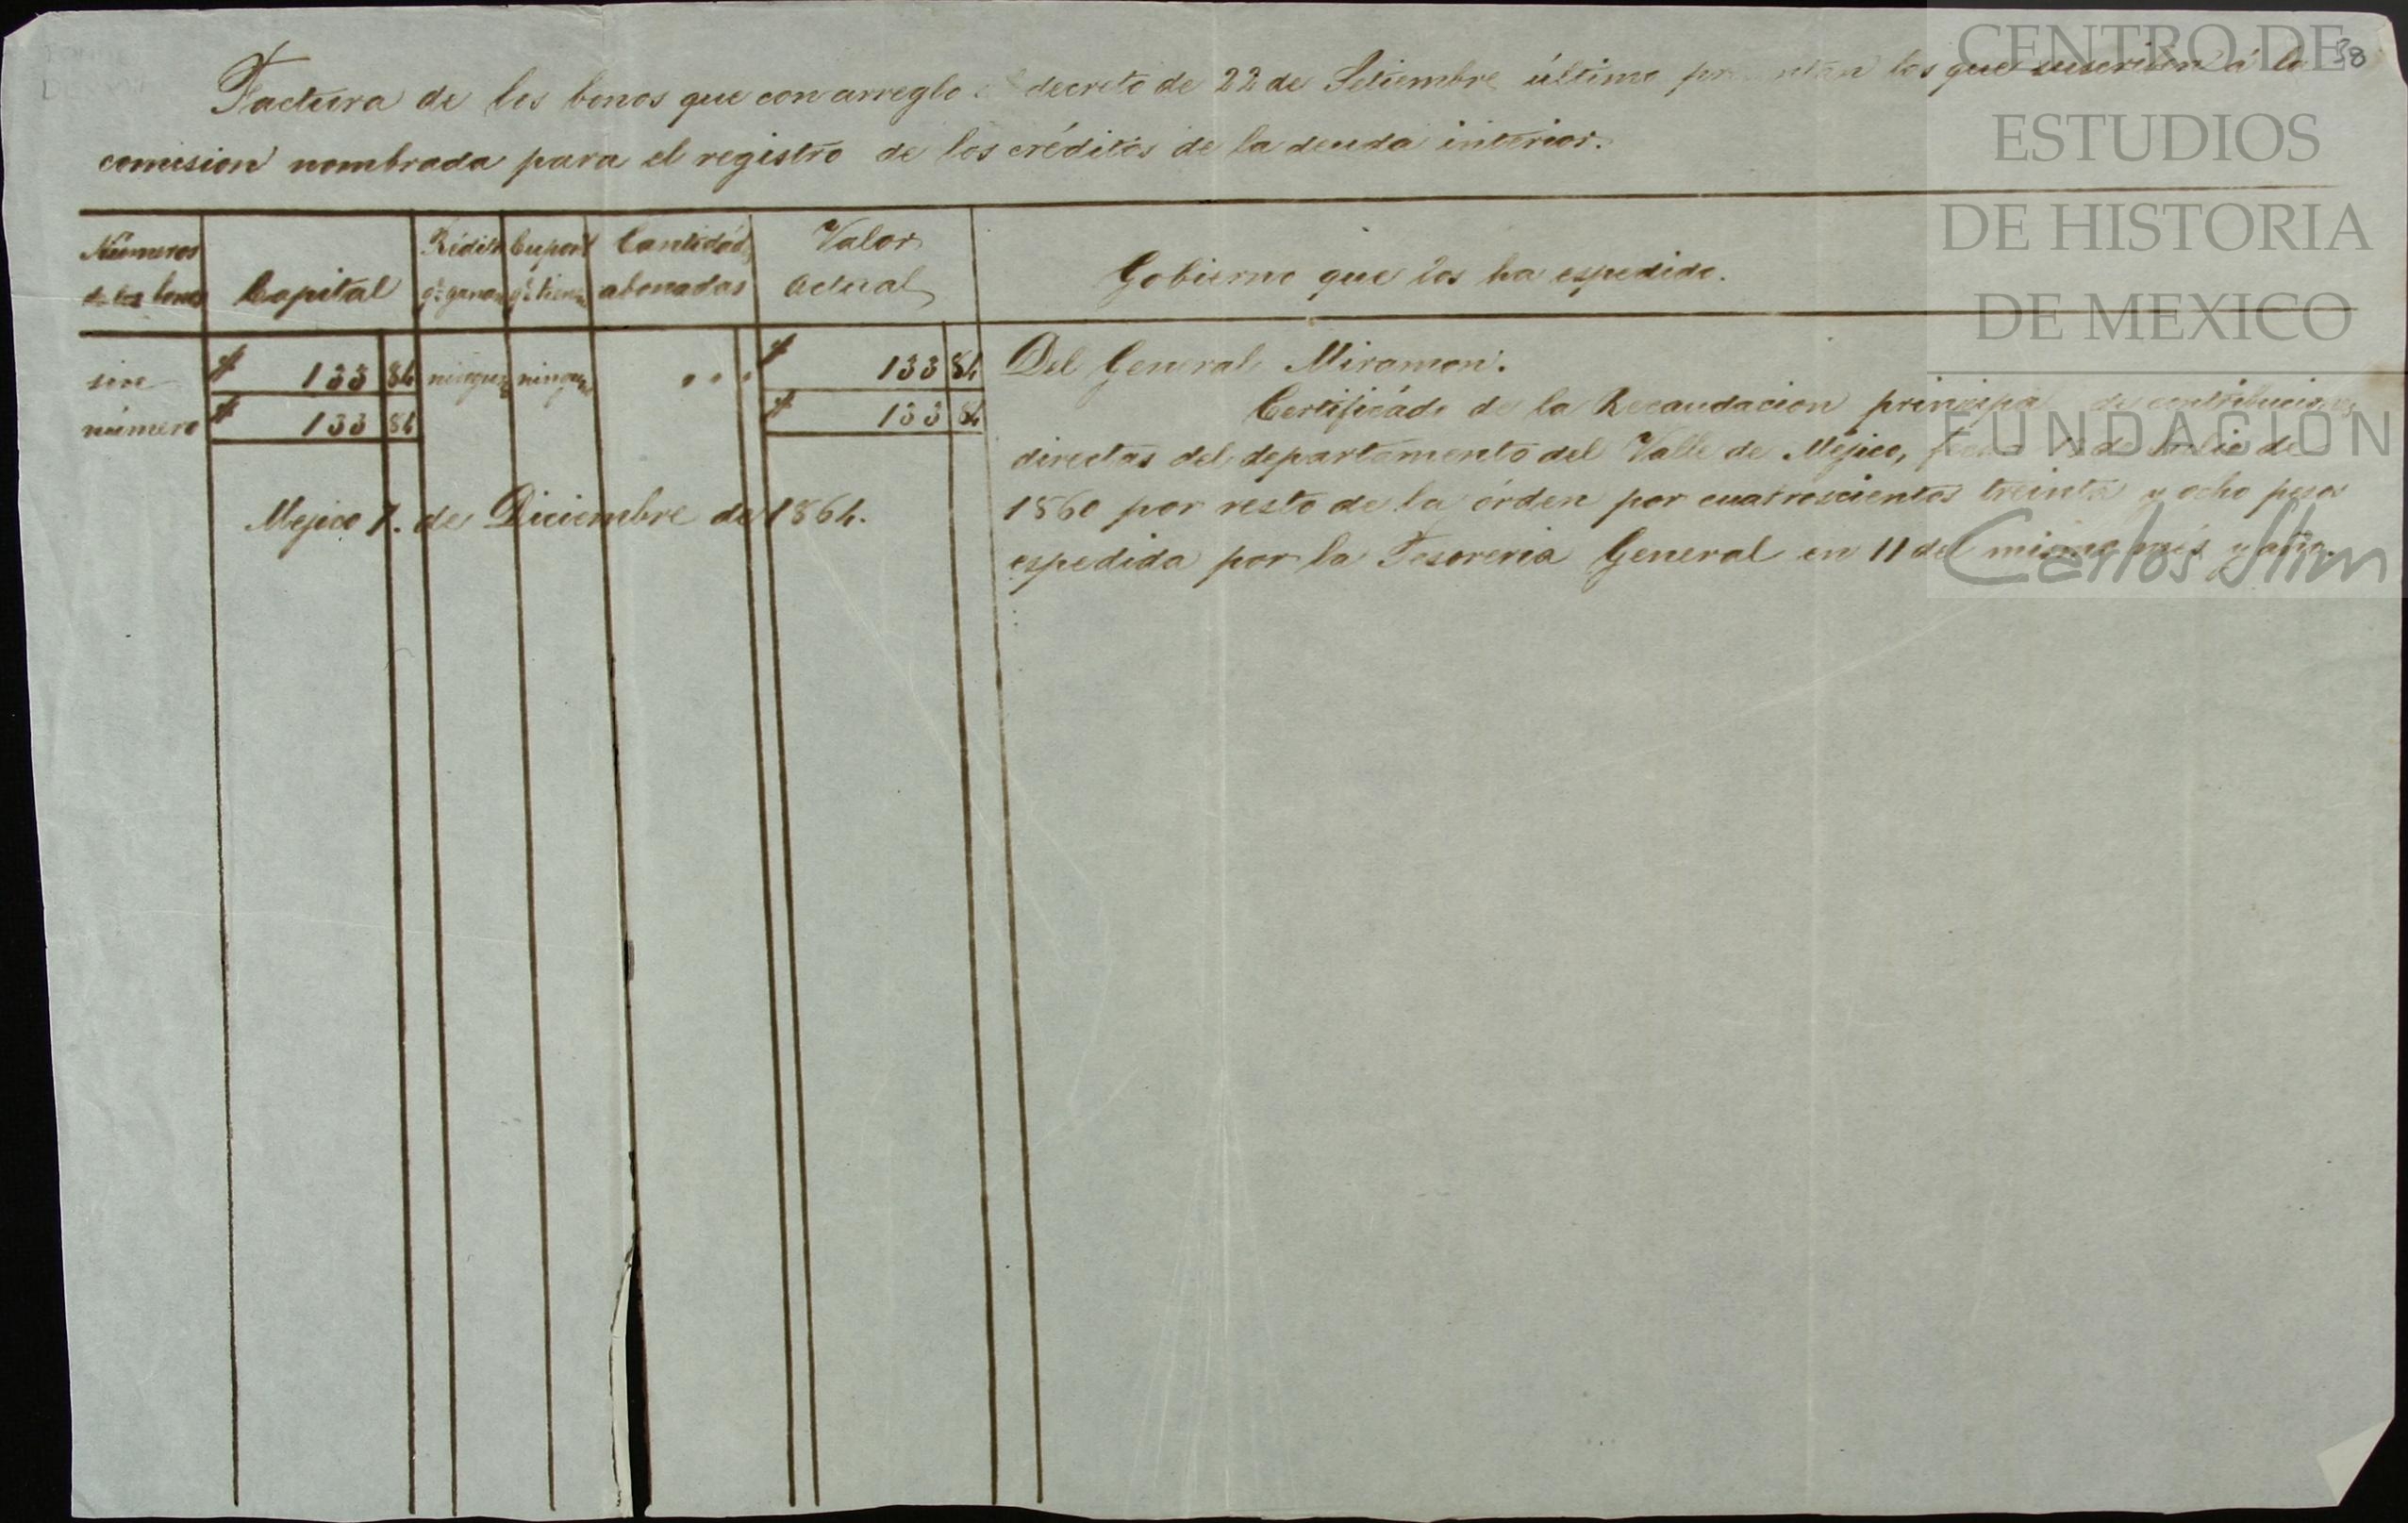 38
Factura de los bonos que con arreglo decreto de 22 de Setiembre último los que suscriben á la
comision nombrada para el registro de los créditos de la deuda interior.
Números de los bonos | Capital | Rédito qe ganan | Cupon qe tienen | Cantidad abonadas | Valor Actual | Gobierno que los ha espedido.
sin $ 133 84 ningun ningun " " " $ 133 84 Del General Miramon.
número $ 133 84 $ 133 84 Certificado de la Recaudacion principal de contribuciones
directas del departamento del Valle de Mejico, de Julio de
1860 por resto de la órden por cuatroscientos treinta y ocho pesos
espedida por la Tesoreria General en 11 del mismo més y año.
Mejico 7. de Diciembre de 1864.
CENTRO DE
ESTUDIOS
DE HISTORIA
DE MEXICO
FUNDACIÓN
Carlos Slim